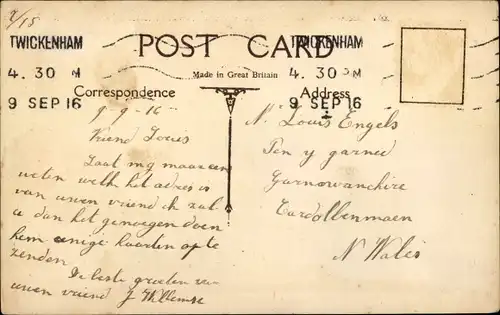 2/15
TWICKENHAM
4. 30 PM
9 SEP 16
POST CARD
TWICKENHAM
4. 30 PM
9 SEP 16
Made in Great Britain
Correspondence
Address
9-9-16
Vriend Louis
Laat mij maar een
weten welk het adres is
van uwen vriend ik zal
u dan het genoegen doen
hem eenige kaarten op te
zenden.
De beste groeten van
uwen vriend J Willemse
M. Louis Engels
Pen y garned
Garnowanchire
Eardollbenmaen
N Wales